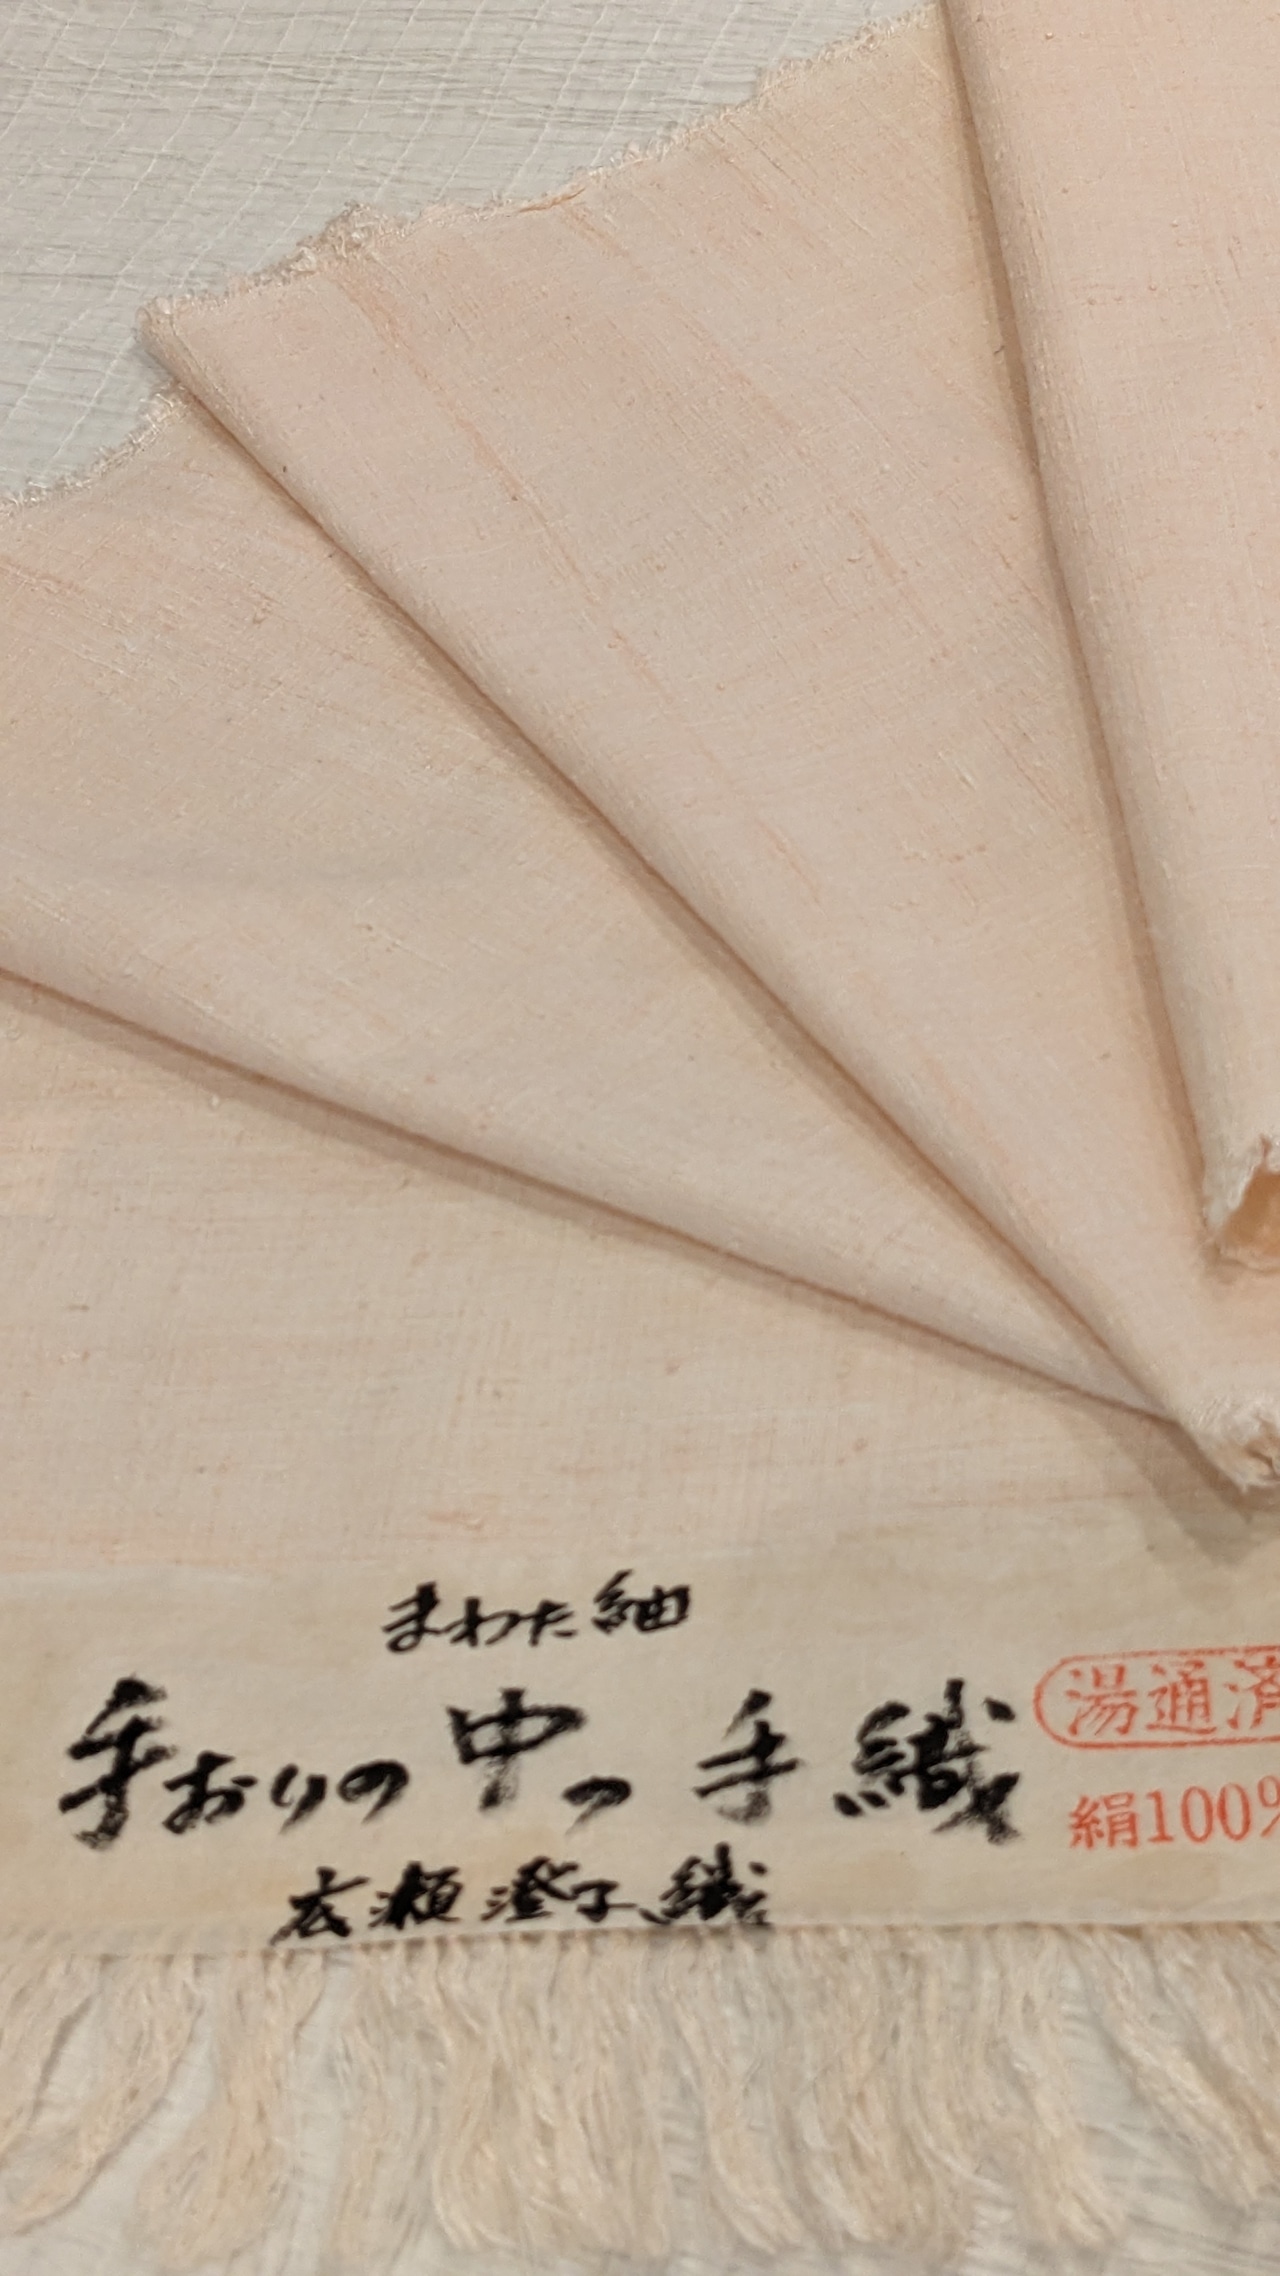 まわた紬
手おりの中の手織
湯通済
絹100%
広瀬澄子織